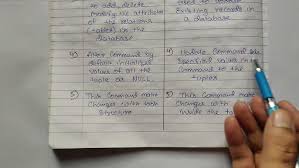 to add, delete
modify the attributes
of the relations
(tables) in the
database
existing records in
a database
4) Alter Command by
default initializes
values of all the
tuple as NULL.
4) Update Command sets
specified values in
Command to the
tuples
5) This Command make
changes with table
structure
5) This Command make
changes with
inside the table